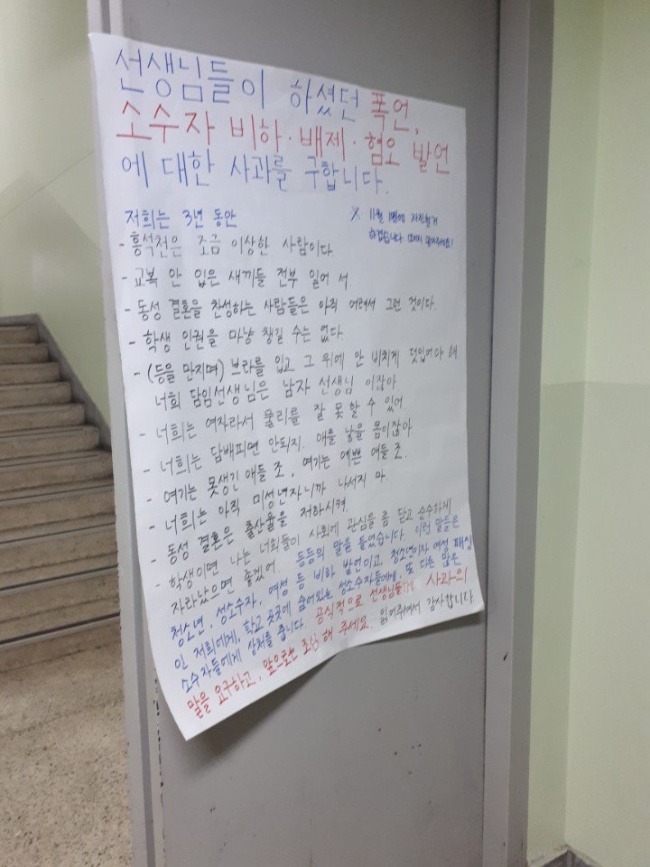 선생님들이 하셨던 폭언,
소수자 비하·배제·혐오 발언
에 대한 사과를 구합니다.
저희는 3년 동안
※ 11월 에 자진철거
하겠습니다
- 홍석천은 조금 이상한 사람이다
- 교복 안 입은 새끼들 전부 일어 서
- 동성 결혼을 찬성하는 사람들은 아직 어려서 그런 것이다.
- 학생 인권을 마냥 챙길 수는 없다.
- (등을 만지며) 브라를 입고 그 위에 안 비치게 덧입어야 해
너희 담임선생님은 남자 선생님 이잖아
- 너희는 여자라서 물리를 잘 못할 수 있어
- 너희는 담배피면 안되지. 애를 낳을 몸이잖아
- 여기는 못생긴 애들 조, 여기는 예쁜 애들 조.
- 너희는 아직 미성년자니까 나서지 마
- 동성 결혼은 출산율을 저하시켜
- 학생이면 나는 너희들이 사회에 관심을 좀 닫고 순수하게
자라났으면 좋겠어. 등등의 말을 들었습니다. 이런 말들은
청소년, 성소수자, 여성 등 비하 발언이고, 청소년이자 여성
인 저희에게, 학교 곳곳에 숨어있는 성소수자들에게, 또 다른 많은
소수자들에게 상처를 줍니다. 공식적으로 선생님들께 사과의
말을 요구하고, 앞으로는 조심 해 주세요. 읽어주셔서 감사합니다